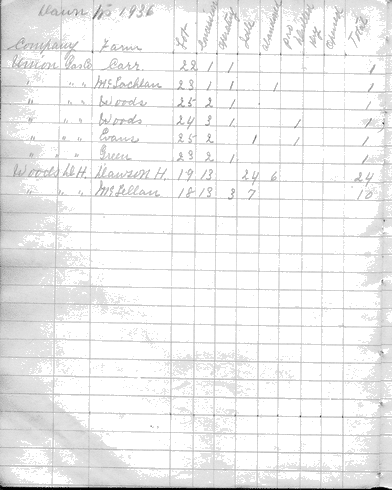 Dawn Tp 1936
Company Farm Lot Concession Quality Idle abandoned pro Drilled Dry Opened Total
Union Gas Co Carr. 22 1 1 1
" " " McLachlan 23 1 1 1 1
" " " Woods 25 2 1 1
" " " Woods 24 3 1 1 1
" " " Evans 25 2 1 1 1
" " " Green 23 2 1 1
Woods D.H. Dawson H. 19 13 24 6 24
" " " McLellan 18 13 3 7 10